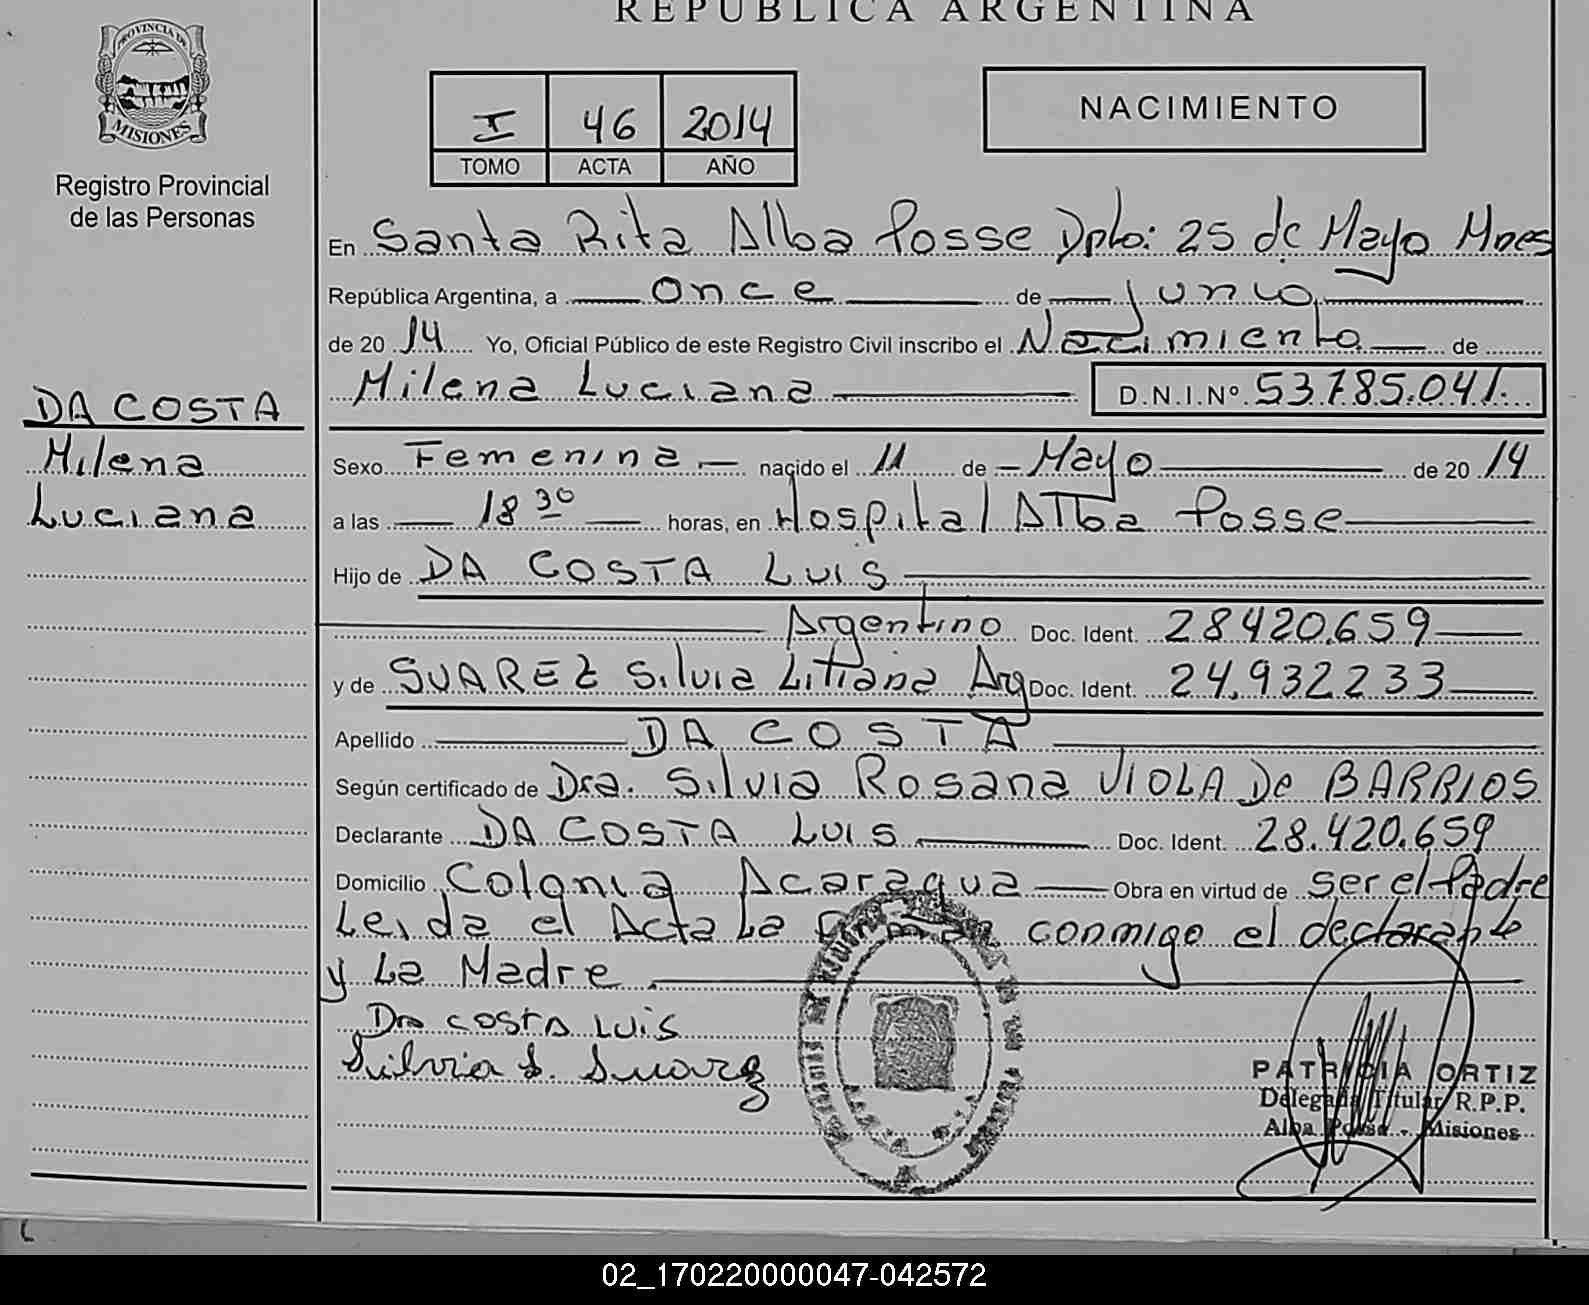 REPUBLICA ARGENTINA
PROVINCIA DE
MISIONES
Registro Provincial
de las Personas
I 46 2014
TOMO ACTA AÑO
NACIMIENTO
En Santa Rita Alba Posse Dpto: 25 de Mayo Mnes
República Argentina, a once de Junio
de 20 14 Yo, Oficial Público de este Registro Civil inscribo el Nacimiento de
Milena Luciana D.N.I.Nº 53.785.041.
DA COSTA
Milena
Luciana
Sexo Femenina nacido el 11 de Mayo de 20 14
a las 18 30 horas, en Hospital Alba Posse
Hijo de DA COSTA LUIS
Argentino Doc. Ident. 28420.659
y de SUAREZ Silvia Liliana Arg Doc. Ident. 24.932233
Apellido DA COSTA
Según certificado de Dra. Silvia Rosana VIOLA De BARRIOS
Declarante DA COSTA LUIS Doc. Ident. 28.420.659
Domicilio Colonia Acaragua Obra en virtud de ser el Padre
Leida el Acta La conmigo el declarante
y La Madre
Da COSTA LUiS
Silvia L. Suarez
PATRICIA ORTIZ
Delegada Titular R.P.P.
Alba Posse - Misiones
02_170220000047-042572